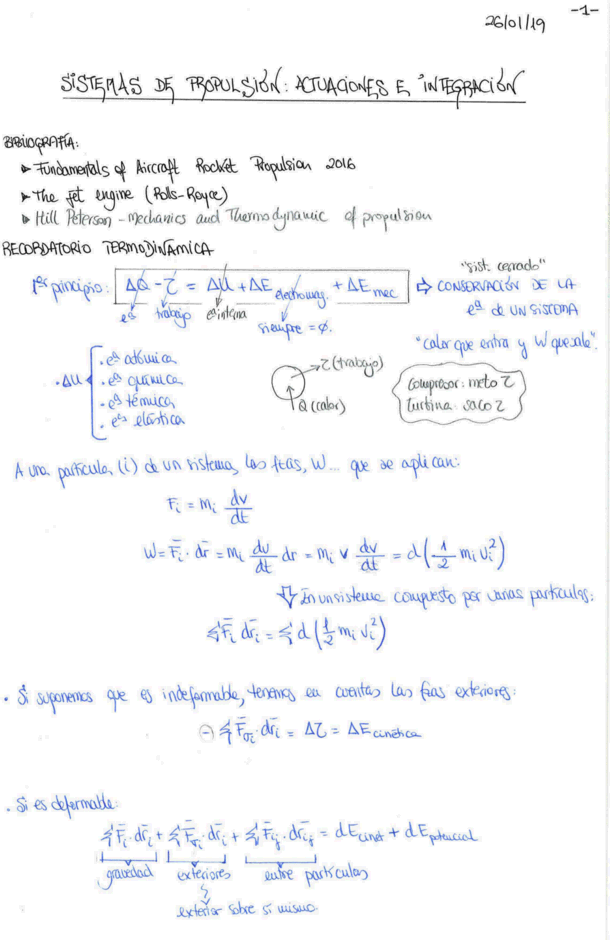 -1-
26/01/19
SISTEMAS DE PROPULSIÓN: ACTUACIONES E INTEGRACIÓN
BIBLIOGRAFÍA:
▸ Fundamentals of Aircraft Rocket Propulsion 2016
▸ The Jet engine (Rolls-Royce)
▸ Hill Peterson - mechanics and Thermodynamic of propulsion
RECORDATORIO TERMODINÁMICA
"sist. cerrado"
1er principio: ΔQ - τ = ΔU + ΔE electromag. + ΔE mec ⇨ CONSERVACIÓN DE LA
eª trabajo eª interna eª de UN SISTEMA
siempre = ∅.
"calor que entra y W que sale".
· ΔU { · eª atómica
· eª química
· eª térmica
· eª elástica
τ (trabajo)
Q (calor)
Compresor: meto τ
Turbina: saco τ
A una partícula (i) de un sistema, las fzas, W... que se aplican:
Fi = mi dv/dt
W = F̄i · dr̄ = mi dv/dt dr = mi v dv/dt = d(1/2 mi vi²)
⇩ En un sistema compuesto por varias partículas:
Σ F̄i dr̄i = Σ d(1/2 mi vi²)
· Si suponemos que es indeformable, tenemos en cuentas las fzas exteriores:
⊖ Σ F̄σi · dr̄i = Δτ = ΔE cinética
· Si es deformable:
Σ F̄i · dr̄i + Σ F̄σi · dr̄i + Σ F̄ij · dr̄ij = dE cinet + dE potencial
gravedad exteriores entre partículas
exterior sobre sí mismo.